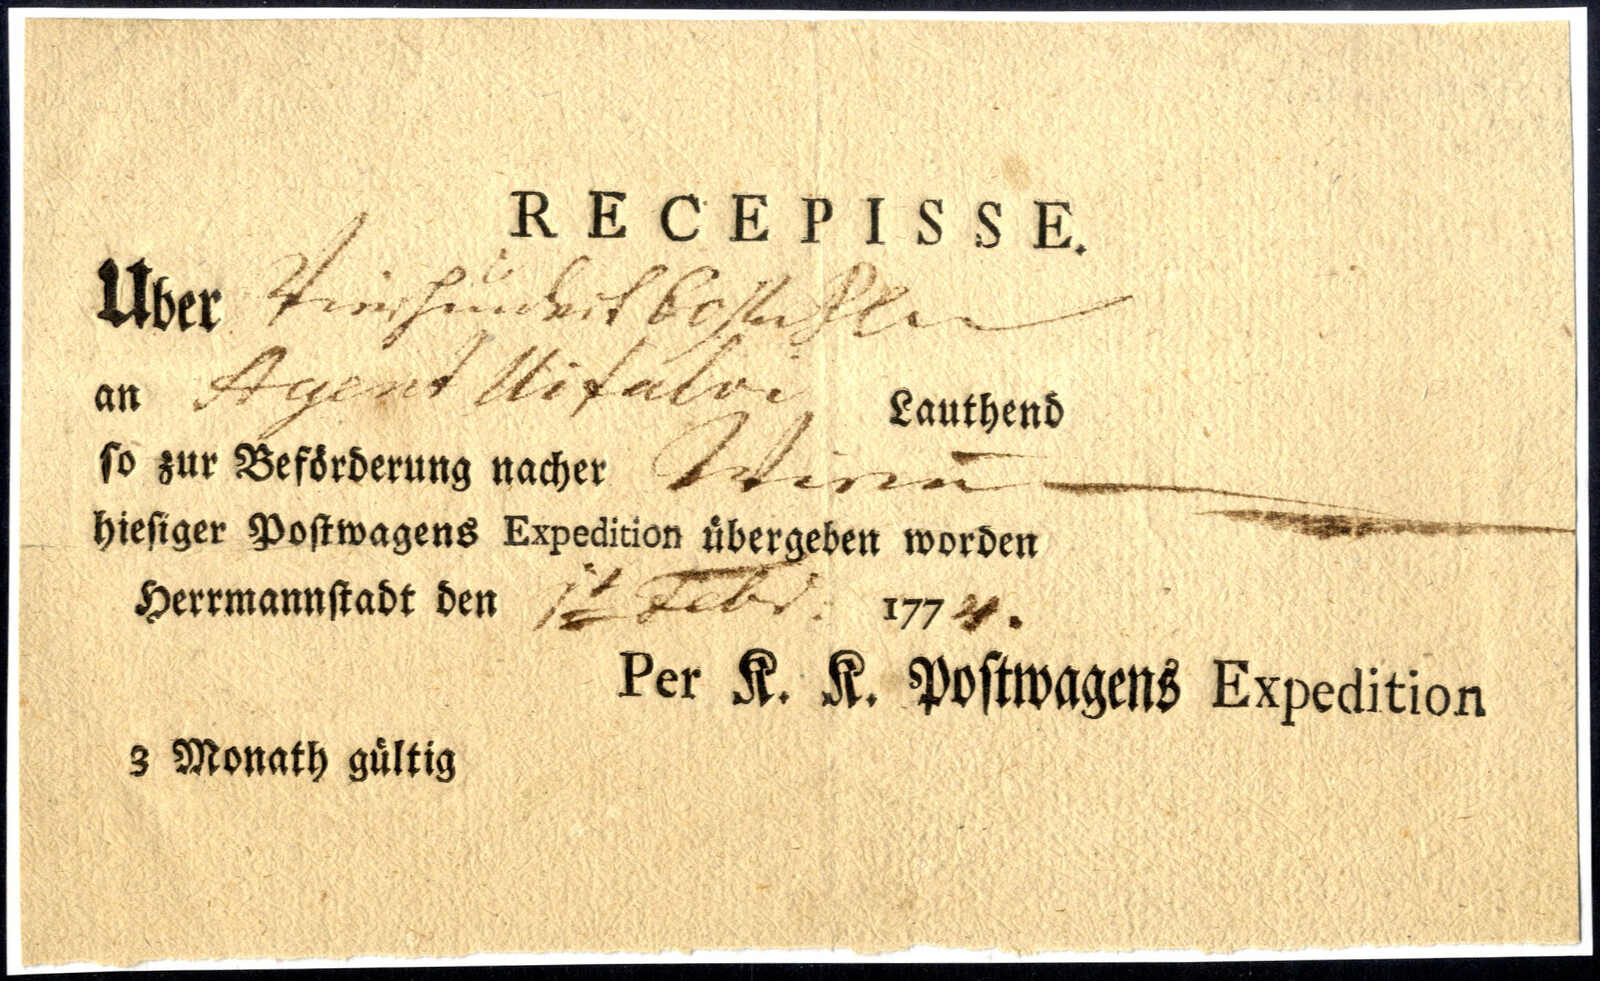 RECEPISSE.
Uber Vierhundert
an Agent Uifalvi Lauthend
so zur Beförderung nacher Wienn
hiesiger Postwagens Expedition übergeben worden
Herrmannstadt den 1t Febr: 1774.
Per K. K. Postwagens Expedition
3 Monath gültig